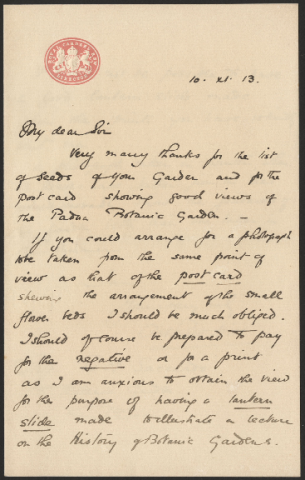 10. xi. 13.
My dear Sir
Very many thanks for the list
of seeds of your Garden and for the
post card showing good views of
the Padua Botanic Garden. —
If you could arrange for a photograph
to be taken from the same point of
view as that of the post card
shewing the arrangement of the small
flower beds I should be much obliged.
I should of course be prepared to pay
for the negative or for a print
as I am anxious to obtain the view
for the purpose of having a lantern
slide made to illustrate a lecture
on the History of Botanic Gardens.